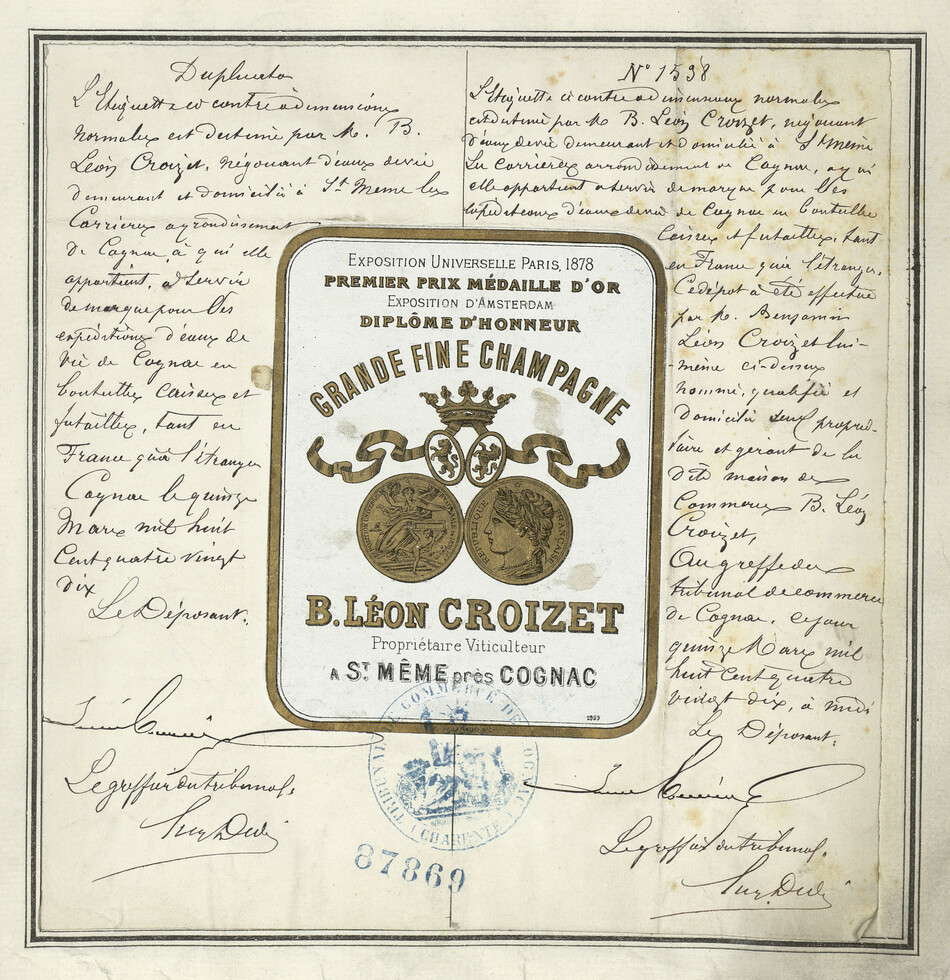 Duplicata
L'Etiquette ci contre à dimensions
normales est destinée par M. B.
Léon Croizet, négociant d'eaux de vie
demeurant et domicilié à St Meme les
Carrières arrondissement
de Cognac, à qui elle
appartient, à servir
de marque pour les
expéditions d'eaux de
vie de Cognac en
bouteilles caisses et
futailles, tant en
France qu'à l'étranger
Cognac le quinze
Mars mil huit
cent quatre vingt
dix
Le Déposant.
Le greffier du tribunal.
N° 1598
L'Etiquette ci contre à dimensions normales
est destinée par M B. Léon Croizet, négociant
d'eaux de vie demeurant et domicilié à St Meme
les Carrières arrondissement de Cognac, à qui
elle appartient à servir de marque pour les
expéditions d'eaux de vie de Cognac en bouteilles
caisses et futailles, tant
en France qu'à l'étranger.
Ce dépôt a été effectué
par M. Benjamin
Léon Croizet lui-
-même ci-dessus
nommé, qualifié et
domicilié seul proprié-
taire et gérant de la
dite maison de
Commerce B. Léon
Croizet,
Au greffe du
tribunal de commerce
de Cognac, ce jour
quinze Mars mil
huit cent quatre
vingt dix, à midi
Le Déposant.
Le greffier du tribunal.
EXPOSITION UNIVERSELLE PARIS, 1878
PREMIER PRIX MÉDAILLE D'OR
EXPOSITION D'AMSTERDAM
DIPLÔME D'HONNEUR
GRANDE FINE CHAMPAGNE
REPUBLIQUE FRANÇAISE
B. LÉON CROIZET
Propriétaire Viticulteur
A ST. MÊME près COGNAC
TRIBUNAL DE COMMERCE DE COGNAC
(CHARENTE)
87869